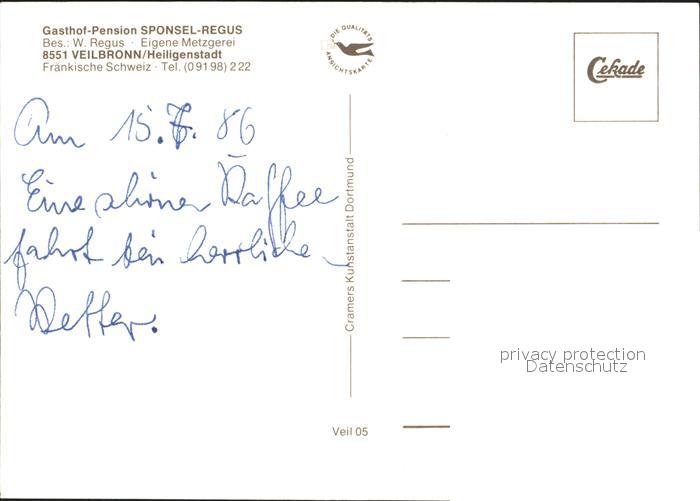 Gasthof-Pension SPONSEL-REGUS
Bes.: W. Regus · Eigene Metzgerei
8551 VEILBRONN/Heiligenstadt
Fränkische Schweiz · Tel. (09198) 222
DIE QUALITÄTS
ANSICHTSKARTE
Cekade
Am 15.7.86
Eine schöne Kaffee
fahrt bei herrlichen
Wetter.
Cramers Kunstanstalt Dortmund
Veil 05
privacy protection
Datenschutz